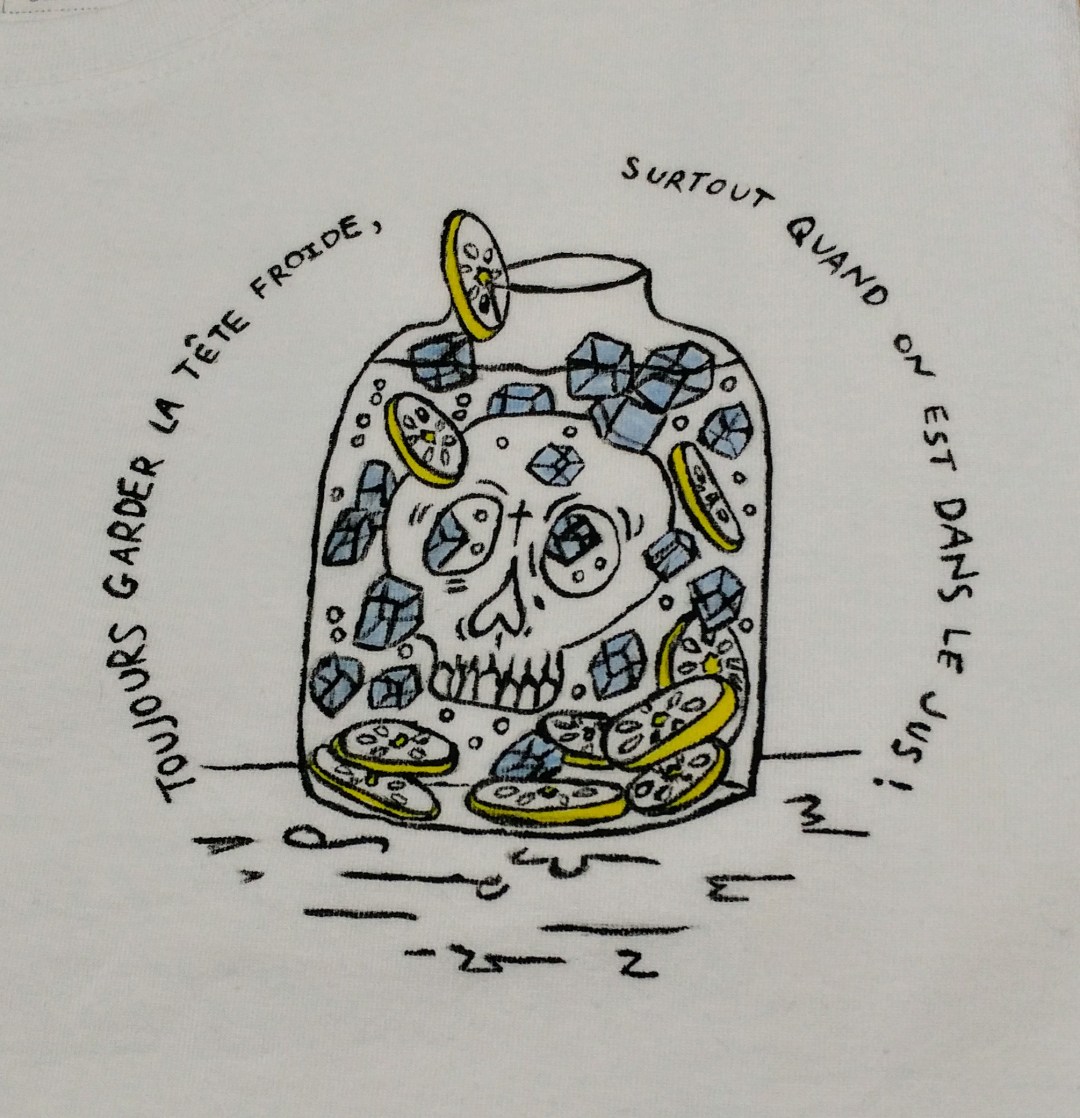 TOUJOURS GARDER LA TÊTE FROIDE,
SURTOUT QUAND ON EST DANS LE JUS !